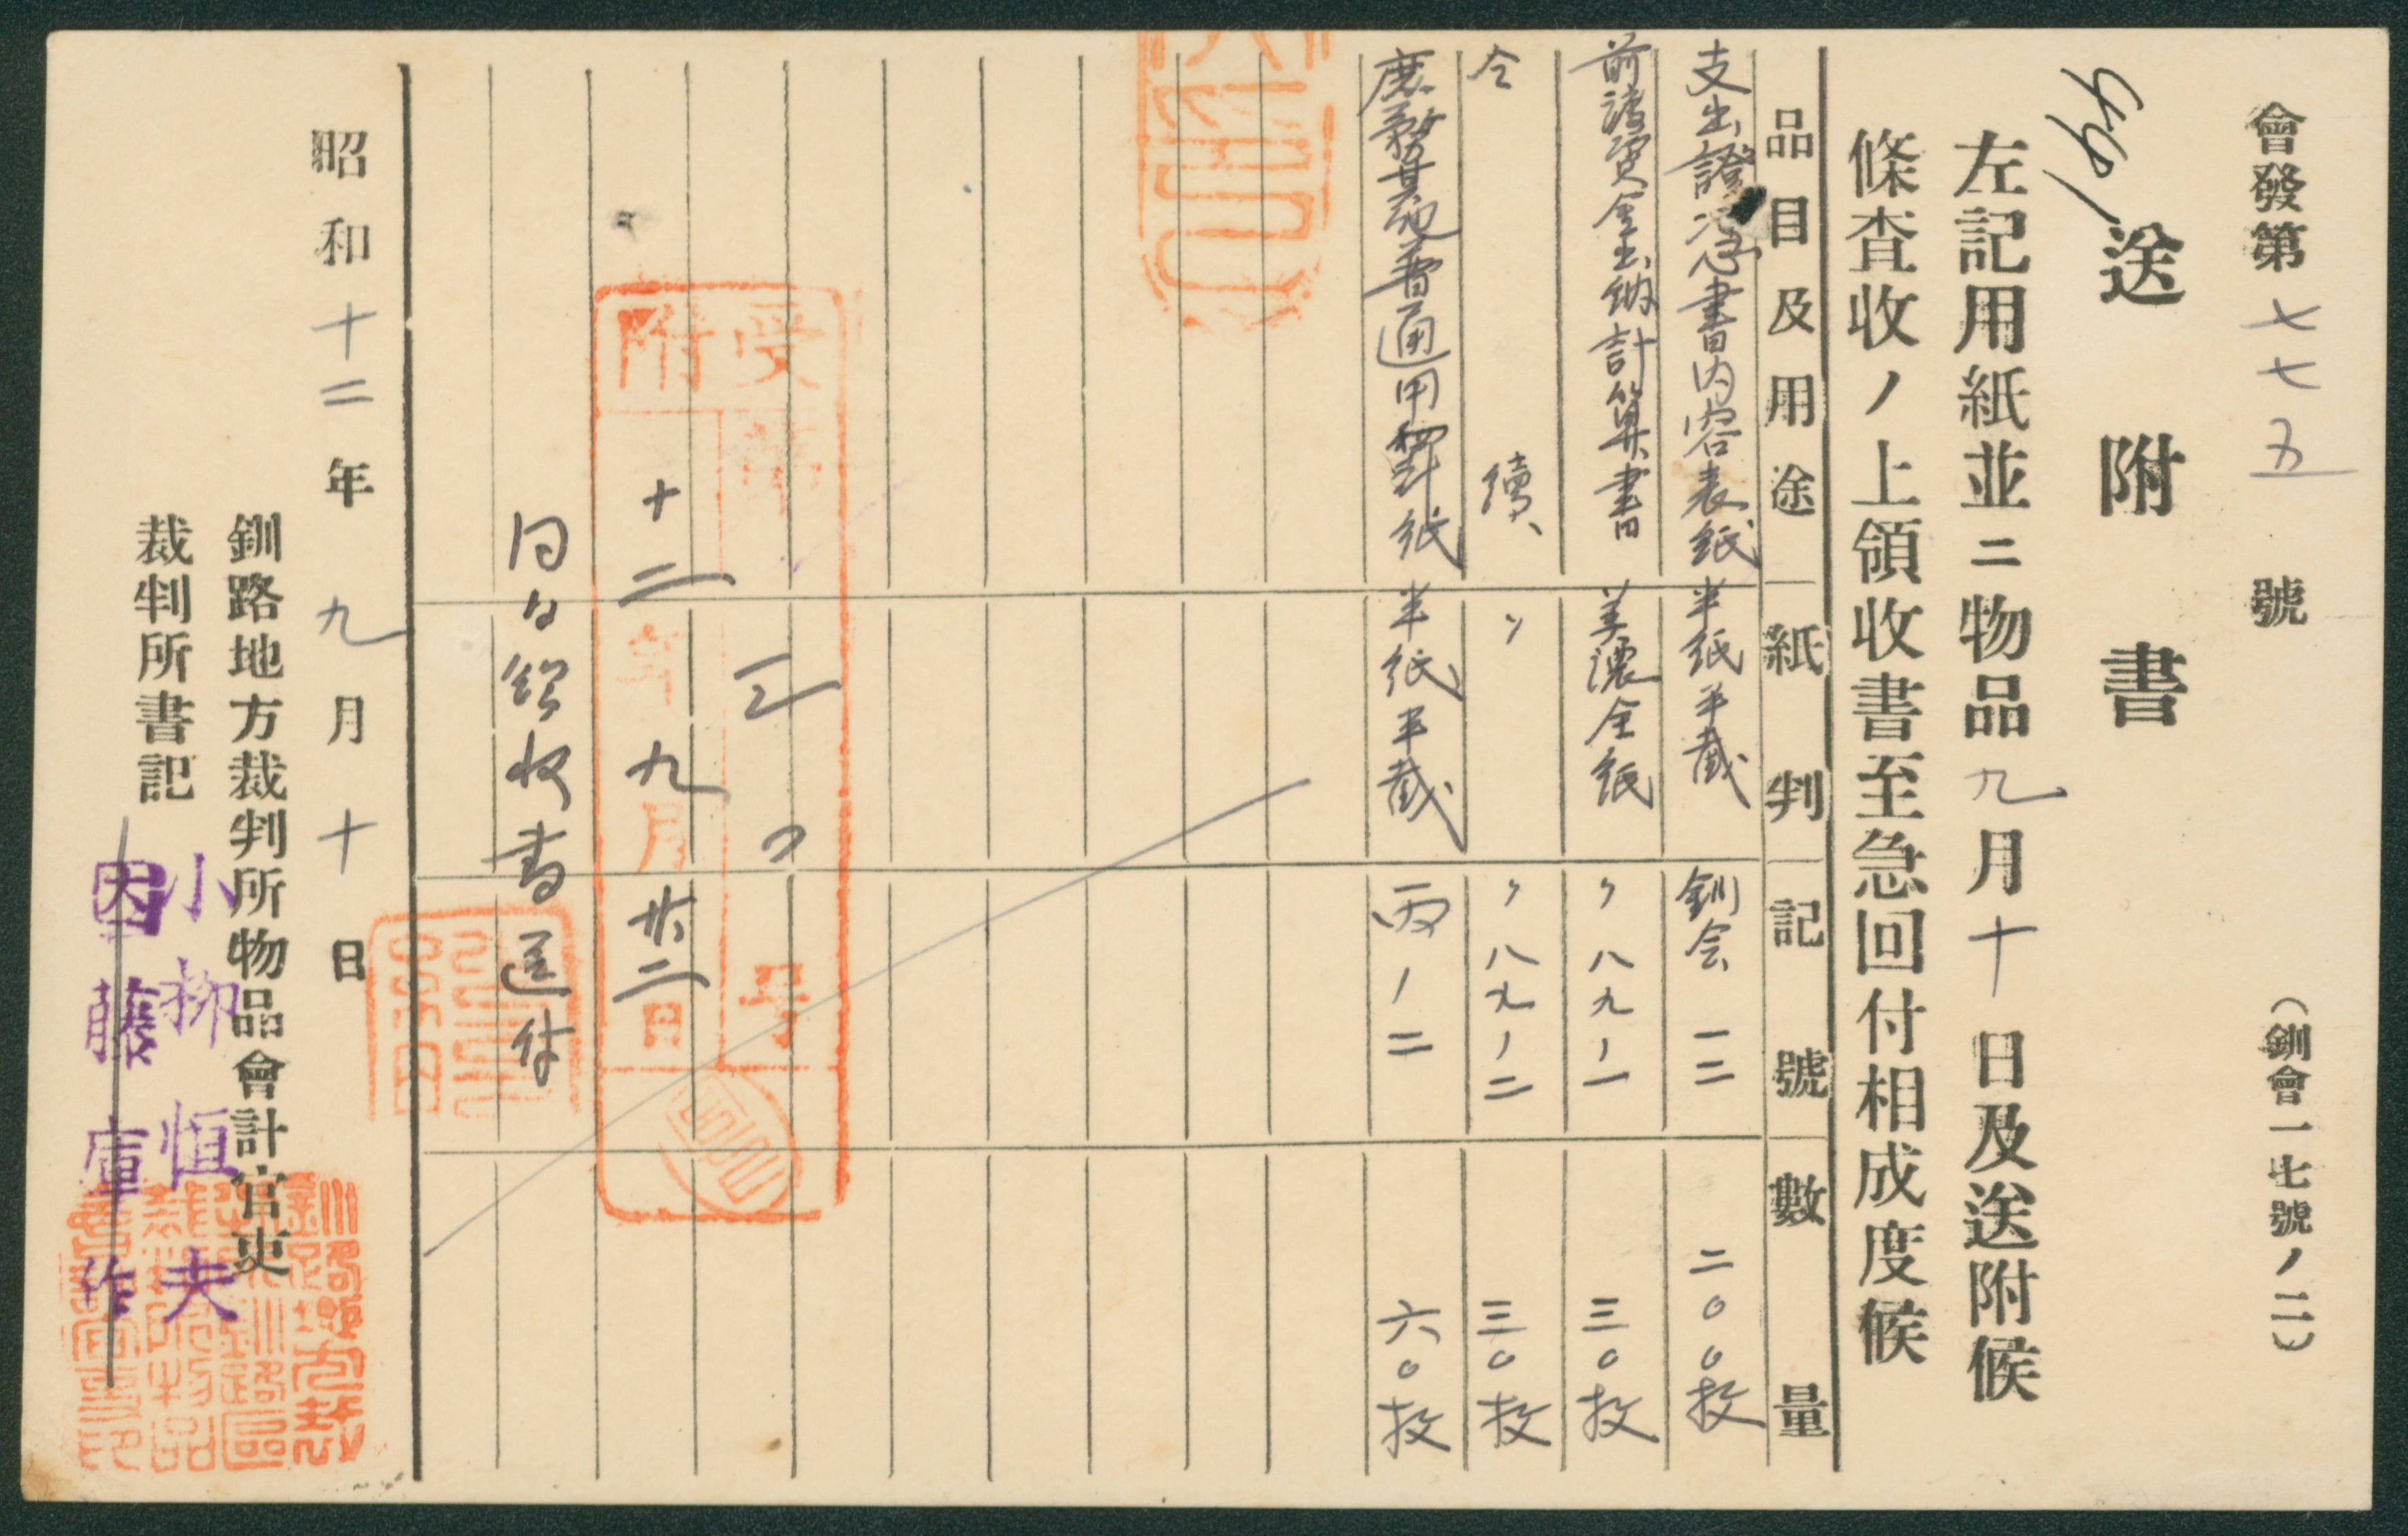 會發第七七五號
(釧會一七號ノ二)
送附書
左記用紙並ニ物品九月十日及送附候
條査收ノ上領收書至急回付相成度候
品目及用途 紙判 記號 數量
支出證憑書内容表紙 半紙半截 釧会一二 二〇〇枚
前渡資金出納計算書 美濃全紙 〃八九ノ一 三〇枚
仝 續 〃 〃八九ノ二 三〇枚
庶務其他普通用罫紙 半紙半截 丙ノ二 六〇枚
受附
第三〇号
十二年九月廿二日
同日領收書送付
昭和十二年九月十日
釧路地方裁判所物品會計官吏
裁判所書記
小柳恒夫
因藤庫作